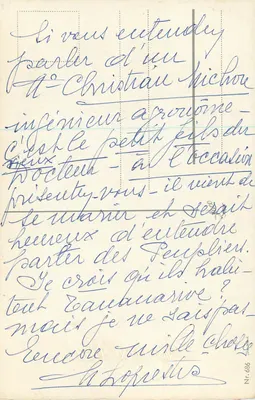 Si vous entendez
parler d'un
Mr Christian Michou
ingénieur agronome -
c'est le petit fils du
vieux
Docteur à l'occasion
présentez-vous - il vient de
se marier et serait
heureux d'entendre
parler des Peupliers.
Je crois qu'ils habi-
tent Tananarive?
mais je ne sais pas -
Encore mille choses
Nr. 486